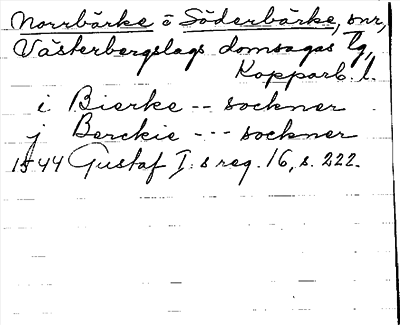 Norrbärke o Söderbärke, snr,
Västerbergslags domsagas tg,
Kopparb. l.
i Bierke -- sockner
j Berckie --- sockner
1544 Gustaf I:s reg. 16, s. 222.